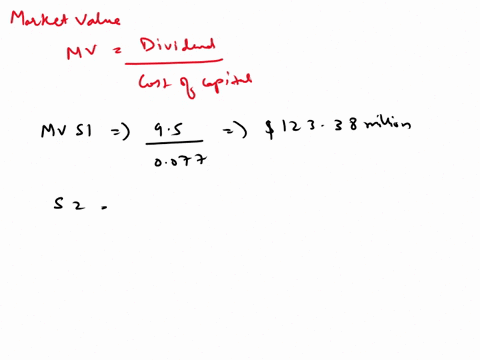 Market Value
MV = Dividend / Cost of capital
MV S1 => 9.5 / 0.077 => $123.38 million
S2 -